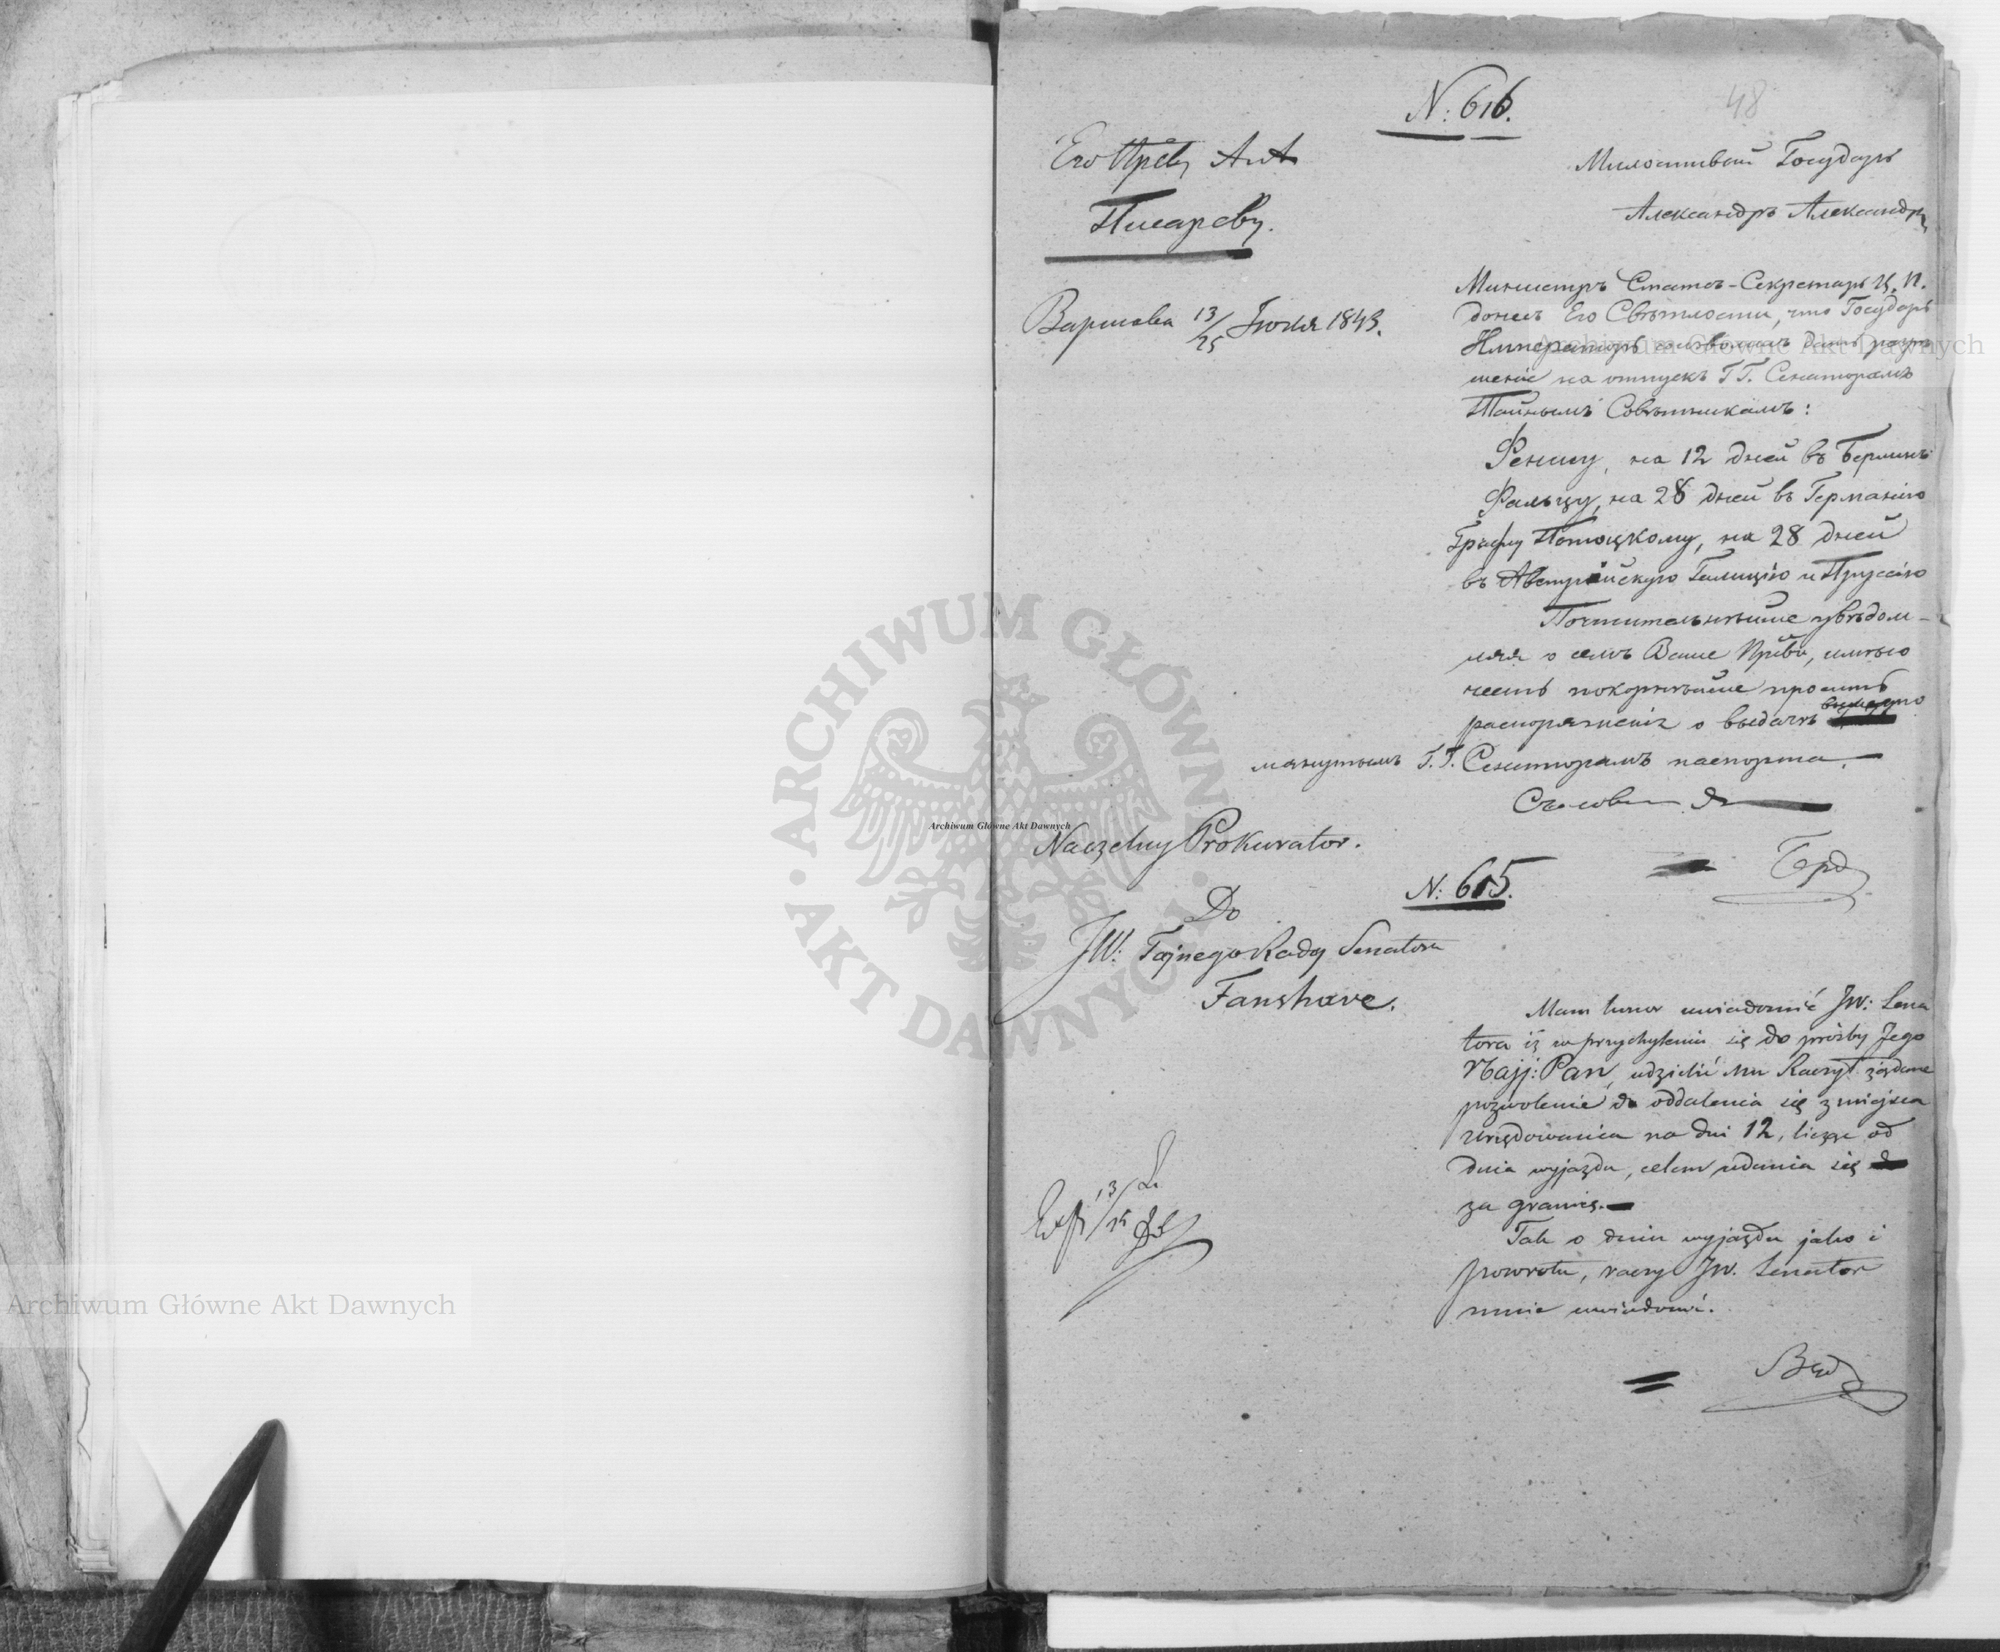 N: 616.
48
Его Прев. А. А.
Писареву.
Варшава 13/25 Июля 1843.
Милостивый Государь
Александръ Александр
Министръ Статсъ-Секретарь Ц. П.
донесъ Его Свѣтлости, что Государь
Императоръ соизволилъ дать разрѣ
шеніе на отпускъ ГГ. Сенаторамъ
Тайнымъ Совѣтникамъ:
Феншу, на 12 дней въ Берлинъ
Фальцу, на 28 дней въ Германію
Графу Потоцкому, на 28 дней
въ Австрійскую Галицію и Пруссію
Почтительнѣйше увѣдом-
ляя о семъ Ваше Прев., имѣю
честь покорнѣйше просить
распоряженія о выдачѣ вышеупо
мянутымъ Г.Г. Сенаторамъ паспорта.
Naczelny Prokurator.
N: 615.
Do
JW: Tajnego Rady Senatora
Fanshave.
Mam honor uwiadomić JW: Sena
tora iż w przychyleniu się do prośby Jego
Najj: Pan, udzielić mu Raczył żądane
pozwolenie do oddalenia się z miejsca
urzędowania na dni 12, licząc od
dnia wyjazdu, celem udania się
za granicę.
Tak o dniu wyjazdu jako i
powrotu, raczy JW. Senator
mnie uwiadomić.
Archiwum Główne Akt Dawnych
Archiwum Główne Akt Dawnych
Archiwum Główne Akt Dawnych
ARCHIWUM GŁÓWNE
AKT DAWNYCH